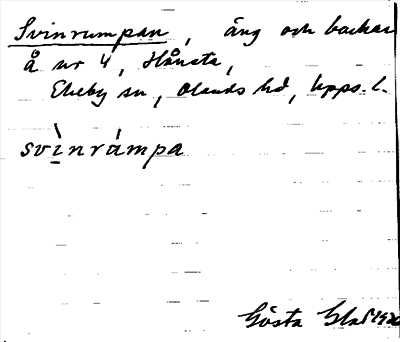 Svinrumpan, äng och backar
å nr 4, Hånsta,
Ekeby sn, Olands hd, Upps. l.
svìnrámpa
Gösta